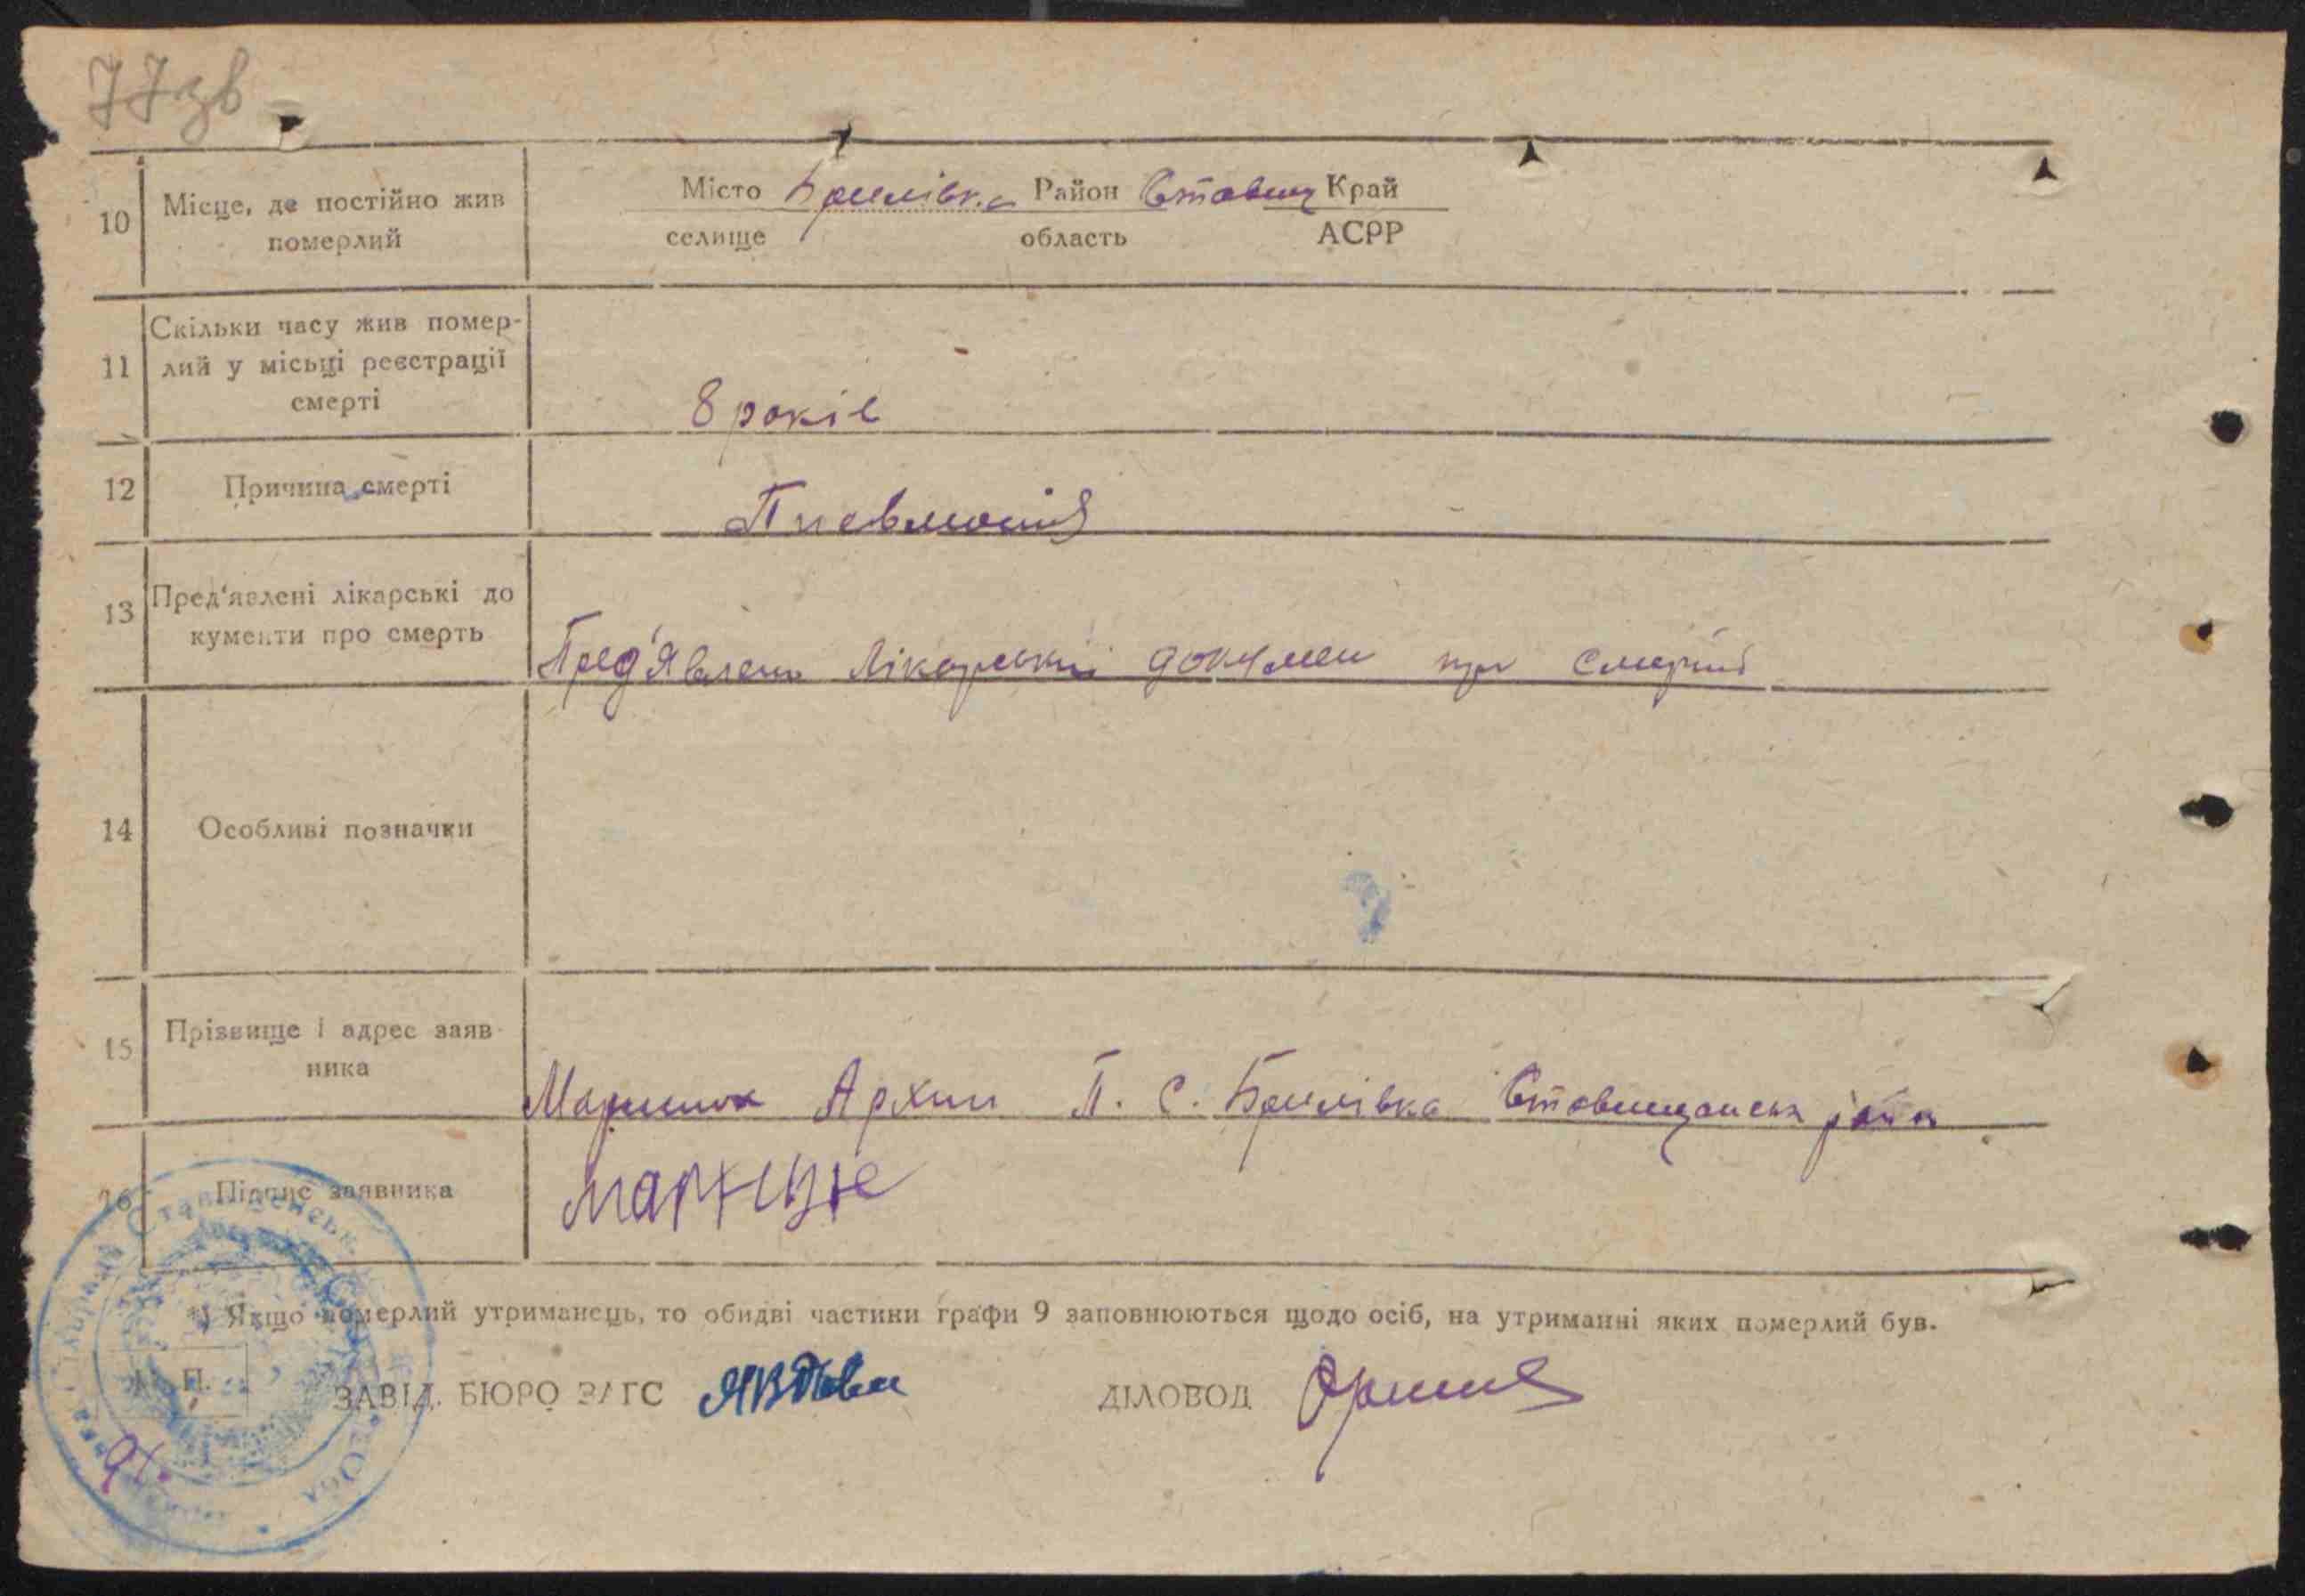 77зв
10 Місце, де постійно жив померлий
Місто Брилівка Район Ставищ Край
селище область АСРР
11 Скільки часу жив помер-
лий у місьці реєстрації
смерті
8 років
12 Причина смерті
Пневмонія
13 Пред'явлені лікарські до
кументи про смерть
Пред'явлено лікарський докумен про смерть
14 Особливі позначки
15 Прізвище і адрес заяв
ника
Архип П. С. Брилівка Ставищанськ район
16 Підпис заявника
*) Якщо померлий утриманець, то обидві частини графи 9 заповнюються щодо осіб, на утриманні яких померлий був.
М. П.
ЗАВІД. БЮРО ЗАГС
ДІЛОВОД